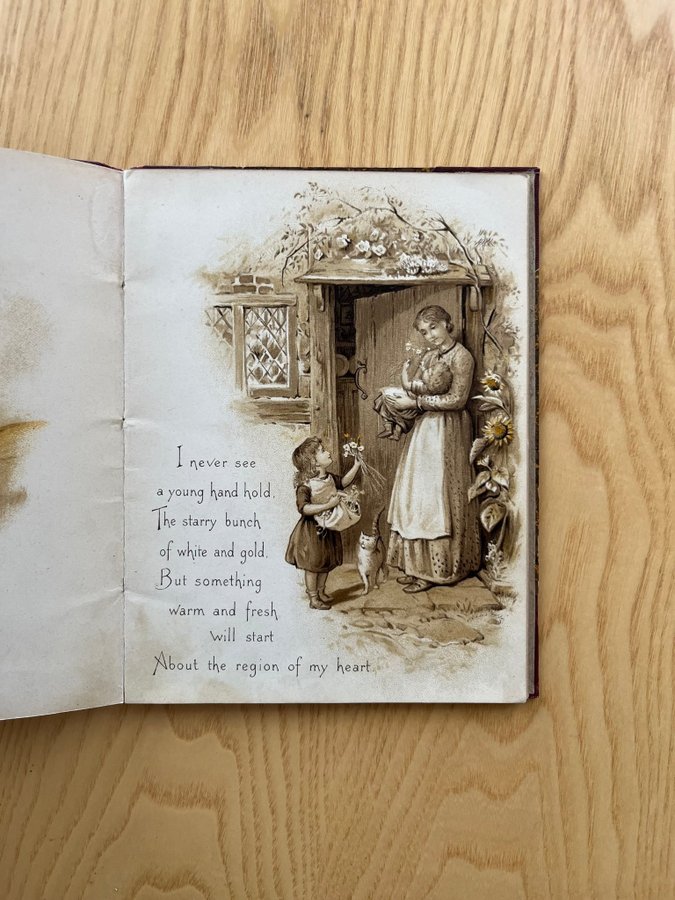 I never see
a young hand hold.
The starry bunch
of white and gold.
But something
warm and fresh
will start
About the region of my heart.